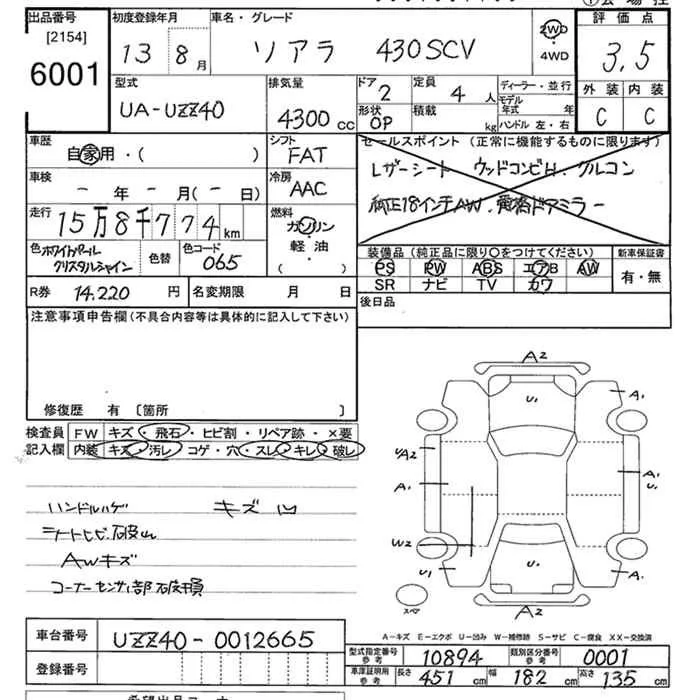 出品番号
[2154]
6001
初度登録年月
13 8月
車名・グレード
ソアラ 430SCV
2WD
・
4WD
評価点
3,5
外装 内装
C C
型式
UA-UZZ40
排気量
4300 CC
ドア
2
定員
4 人
形状
OP
積載
kg
ディーラー・並行
モデル年式 年
ハンドル 左・右
車歴
自家用・( )
シフト
FAT
車検
- 年 - 月(- 日)
冷房
AAC
走行
15万8千774km
燃料
ガソリン
軽油
( )
色 ホワイトパール
クリスタルシャイン
色替
色コード
065
セールスポイント (正常に機能するものに限ります)
Lザーシート ウッドコンビH.クルコン
純正18インチAW.電格ドアミラー
装備品(純正品に限り〇をつけてください) 新車保証書
PS PW ABS エアB AW 有・無
SR ナビ TV カワ
後日品
R券 14.220 円
名変期限 月 日
注意事項申告欄(不具合内容等は具体的に記入して下さい)
修復歴 有 〔箇所 〕
検査員 FW キズ・飛石・ヒビ割・リペア跡・×要
記入欄 内装 キズ・汚レ・コゲ・穴・スレ・キレ・破レ
ハンドルハゲ キズ凹
シートヒビ.破れ
AWキズ
コーナーセンサー部破損
A2
U1 A1
U/A2
A1 A1 U1
W2
U1 U1 A1
スペア A2
A-キズ E-エクボ U-凹み W-補修跡 S-サビ C-腐食 XX-交換済
車台番号 UZZ40-0012665
登録番号
型式指定番号 参考 10894 類別区分番号 参考 0001
車庫証明用 参考 長さ 451 cm 幅 182 cm 高さ 135 cm